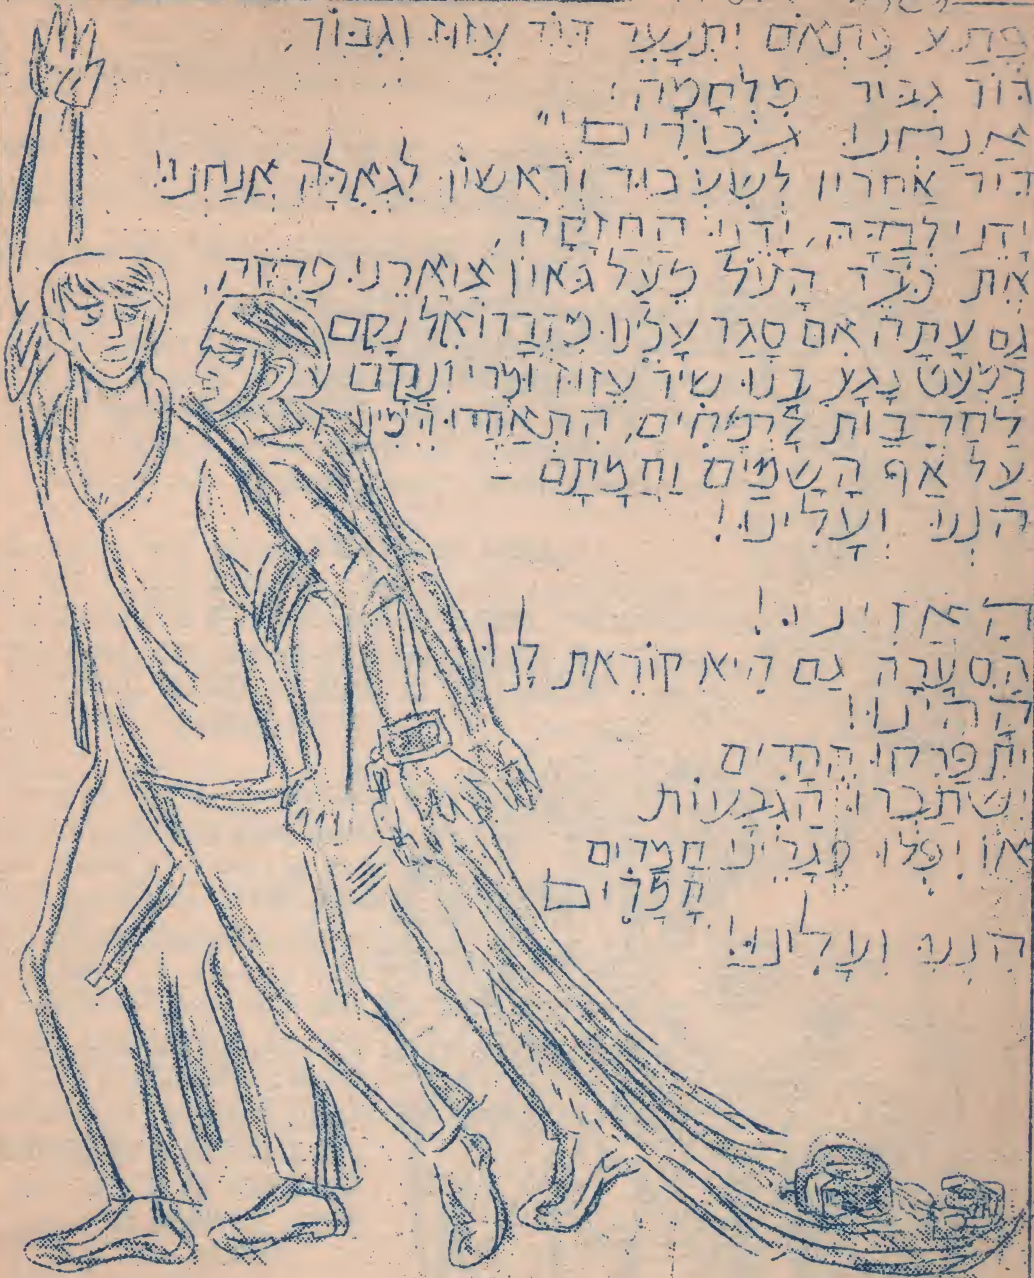 פֶּתַע פִּתְאֹם יִתְנָעֵר דּוֹר עִזּוּז וְגִבּוֹר,
דּוֹר גִּבּוֹר מִלְחָמָה:
אֲנַחְנוּ גִּבּוֹרִים!
דּוֹר אַחֲרוֹן לְשִׁעְבּוּד וְרִאשׁוֹן לִגְאֻלָּה אֲנַחְנוּ!
יָדֵנוּ לְבַדָּהּ, יָדֵנוּ הַחֲזָקָה,
אֶת כֹּבֶד הָעֹל מֵעַל גְּאוֹן צַוָּארֵנוּ פָּרְקָה.
גַּם עַתָּה אִם סָגַר עָלֵינוּ מִדְבָּרוֹ אֵל נָקָם
כִּמְעַט נָגַע בָּנוּ שִׁיר עִזּוּז וּמְרִי וַנָּקָם
לַחֲרָבוֹת לָרְמָחִים, הִתְאַחֲדוּ
עַל אַף הַשָּׁמַיִם וַחֲמָתָם –
הִנְנוּ וְעָלִינוּ!
הַאֲזִינוּ!
הַסְּעָרָה גַּם הִיא קוֹרֵאת לָנוּ
הָהִינוּ!
יִתְפָּרְקוּ הֶהָרִים
וְיִשְׁתַּבְּרוּ הַגְּבָעוֹת
אוֹ יִפְּלוּ פְגָרֵינוּ חֳמָרִים
חֳמָרִים
הִנְנוּ וְעָלִינוּ!